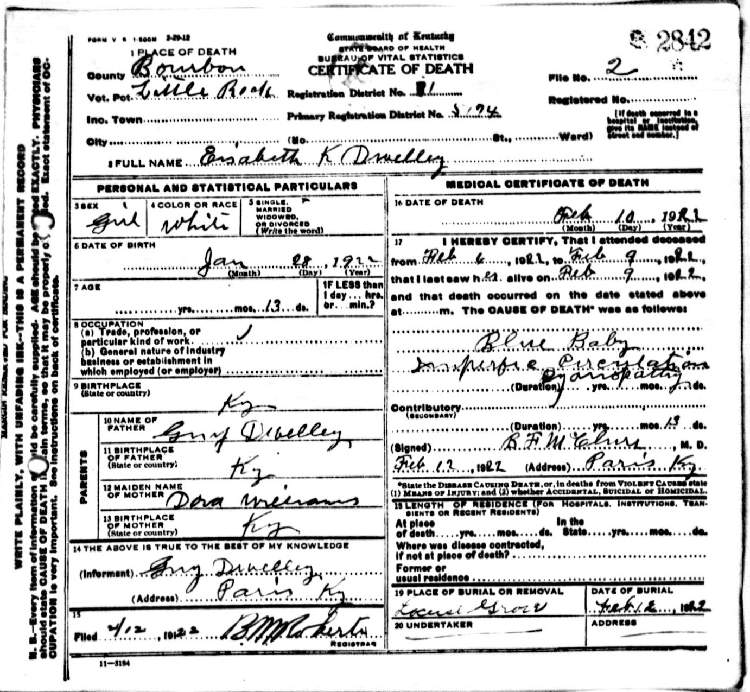 FORM V. S. 1-500M 3-29-12
Commonwealth of Kentucky
STATE BOARD OF HEALTH
BUREAU OF VITAL STATISTICS
CERTIFICATE OF DEATH
2842
1 PLACE OF DEATH
County Bourbon
Vot. Pct. Little Rock
Inc. Town
City (No. St., Ward)
Registration District No. 81
Primary Registration District No. 5194
File No. 2
Registered No.
[If death occurred in a hospital or institution, give its NAME instead of street and number.]
2 FULL NAME Elsabeth K Dwelley
PERSONAL AND STATISTICAL PARTICULARS
3 SEX Girl
4 COLOR OR RACE White
5 SINGLE, MARRIED WIDOWED, OR DIVORCED (Write the word)
6 DATE OF BIRTH
Jan 28, 1922
(Month) (Day) (Year)
7 AGE
yrs. mos. 13 ds.
IF LESS than 1 day... hrs. or... min.?
8 OCCUPATION
(a) Trade, profession, or particular kind of work
(b) General nature of industry business or establishment in which employed (or employer)
9 BIRTHPLACE
(State or country)
Ky
PARENTS
10 NAME OF FATHER Guy Dwelley
11 BIRTHPLACE OF FATHER (State or country) Ky
12 MAIDEN NAME OF MOTHER Dora Williams
13 BIRTHPLACE OF MOTHER (State or country) Ky
14 THE ABOVE IS TRUE TO THE BEST OF MY KNOWLEDGE
(Informant) Guy Dwelley
(Address) Paris Ky
15
Filed 2/12, 1922 B M Roberts
REGISTRAR
11-3184
MEDICAL CERTIFICATE OF DEATH
16 DATE OF DEATH
Feb 10, 1922
(Month) (Day) (Year)
17 I HEREBY CERTIFY, That I attended deceased
from Feb 6, 1922, to Feb 9, 1922,
that I last saw her alive on Feb 9, 1922,
and that death occurred on the date stated above
at m. The CAUSE OF DEATH* was as follows:
Blue Baby
Imperfic Circulation
Cyanopathy
(Duration) yrs. mos. ds.
Contributory
(SECONDARY)
(Duration) yrs. mos. 13 ds.
(Signed) M. D.
Feb 12, 1922 (Address) Paris Ky.
*State the DISEASE CAUSING DEATH, or, in deaths from VIOLENT CAUSES state
(1) MEANS OF INJURY; and (2) whether ACCIDENTAL, SUICIDAL or HOMICIDAL.
18 LENGTH OF RESIDENCE (FOR HOSPITALS, INSTITUTIONS, TRANSIENTS OR RECENT RESIDENTS)
At place of death yrs. mos. ds. In the State yrs. mos. ds.
Where was disease contracted, if not at place of death?
Former or usual residence
19 PLACE OF BURIAL OR REMOVAL
Locust Grove
DATE OF BURIAL
Feb 12, 1922
20 UNDERTAKER
ADDRESS
WRITE PLAINLY, WITH UNFADING INK—THIS IS A PERMANENT RECORD